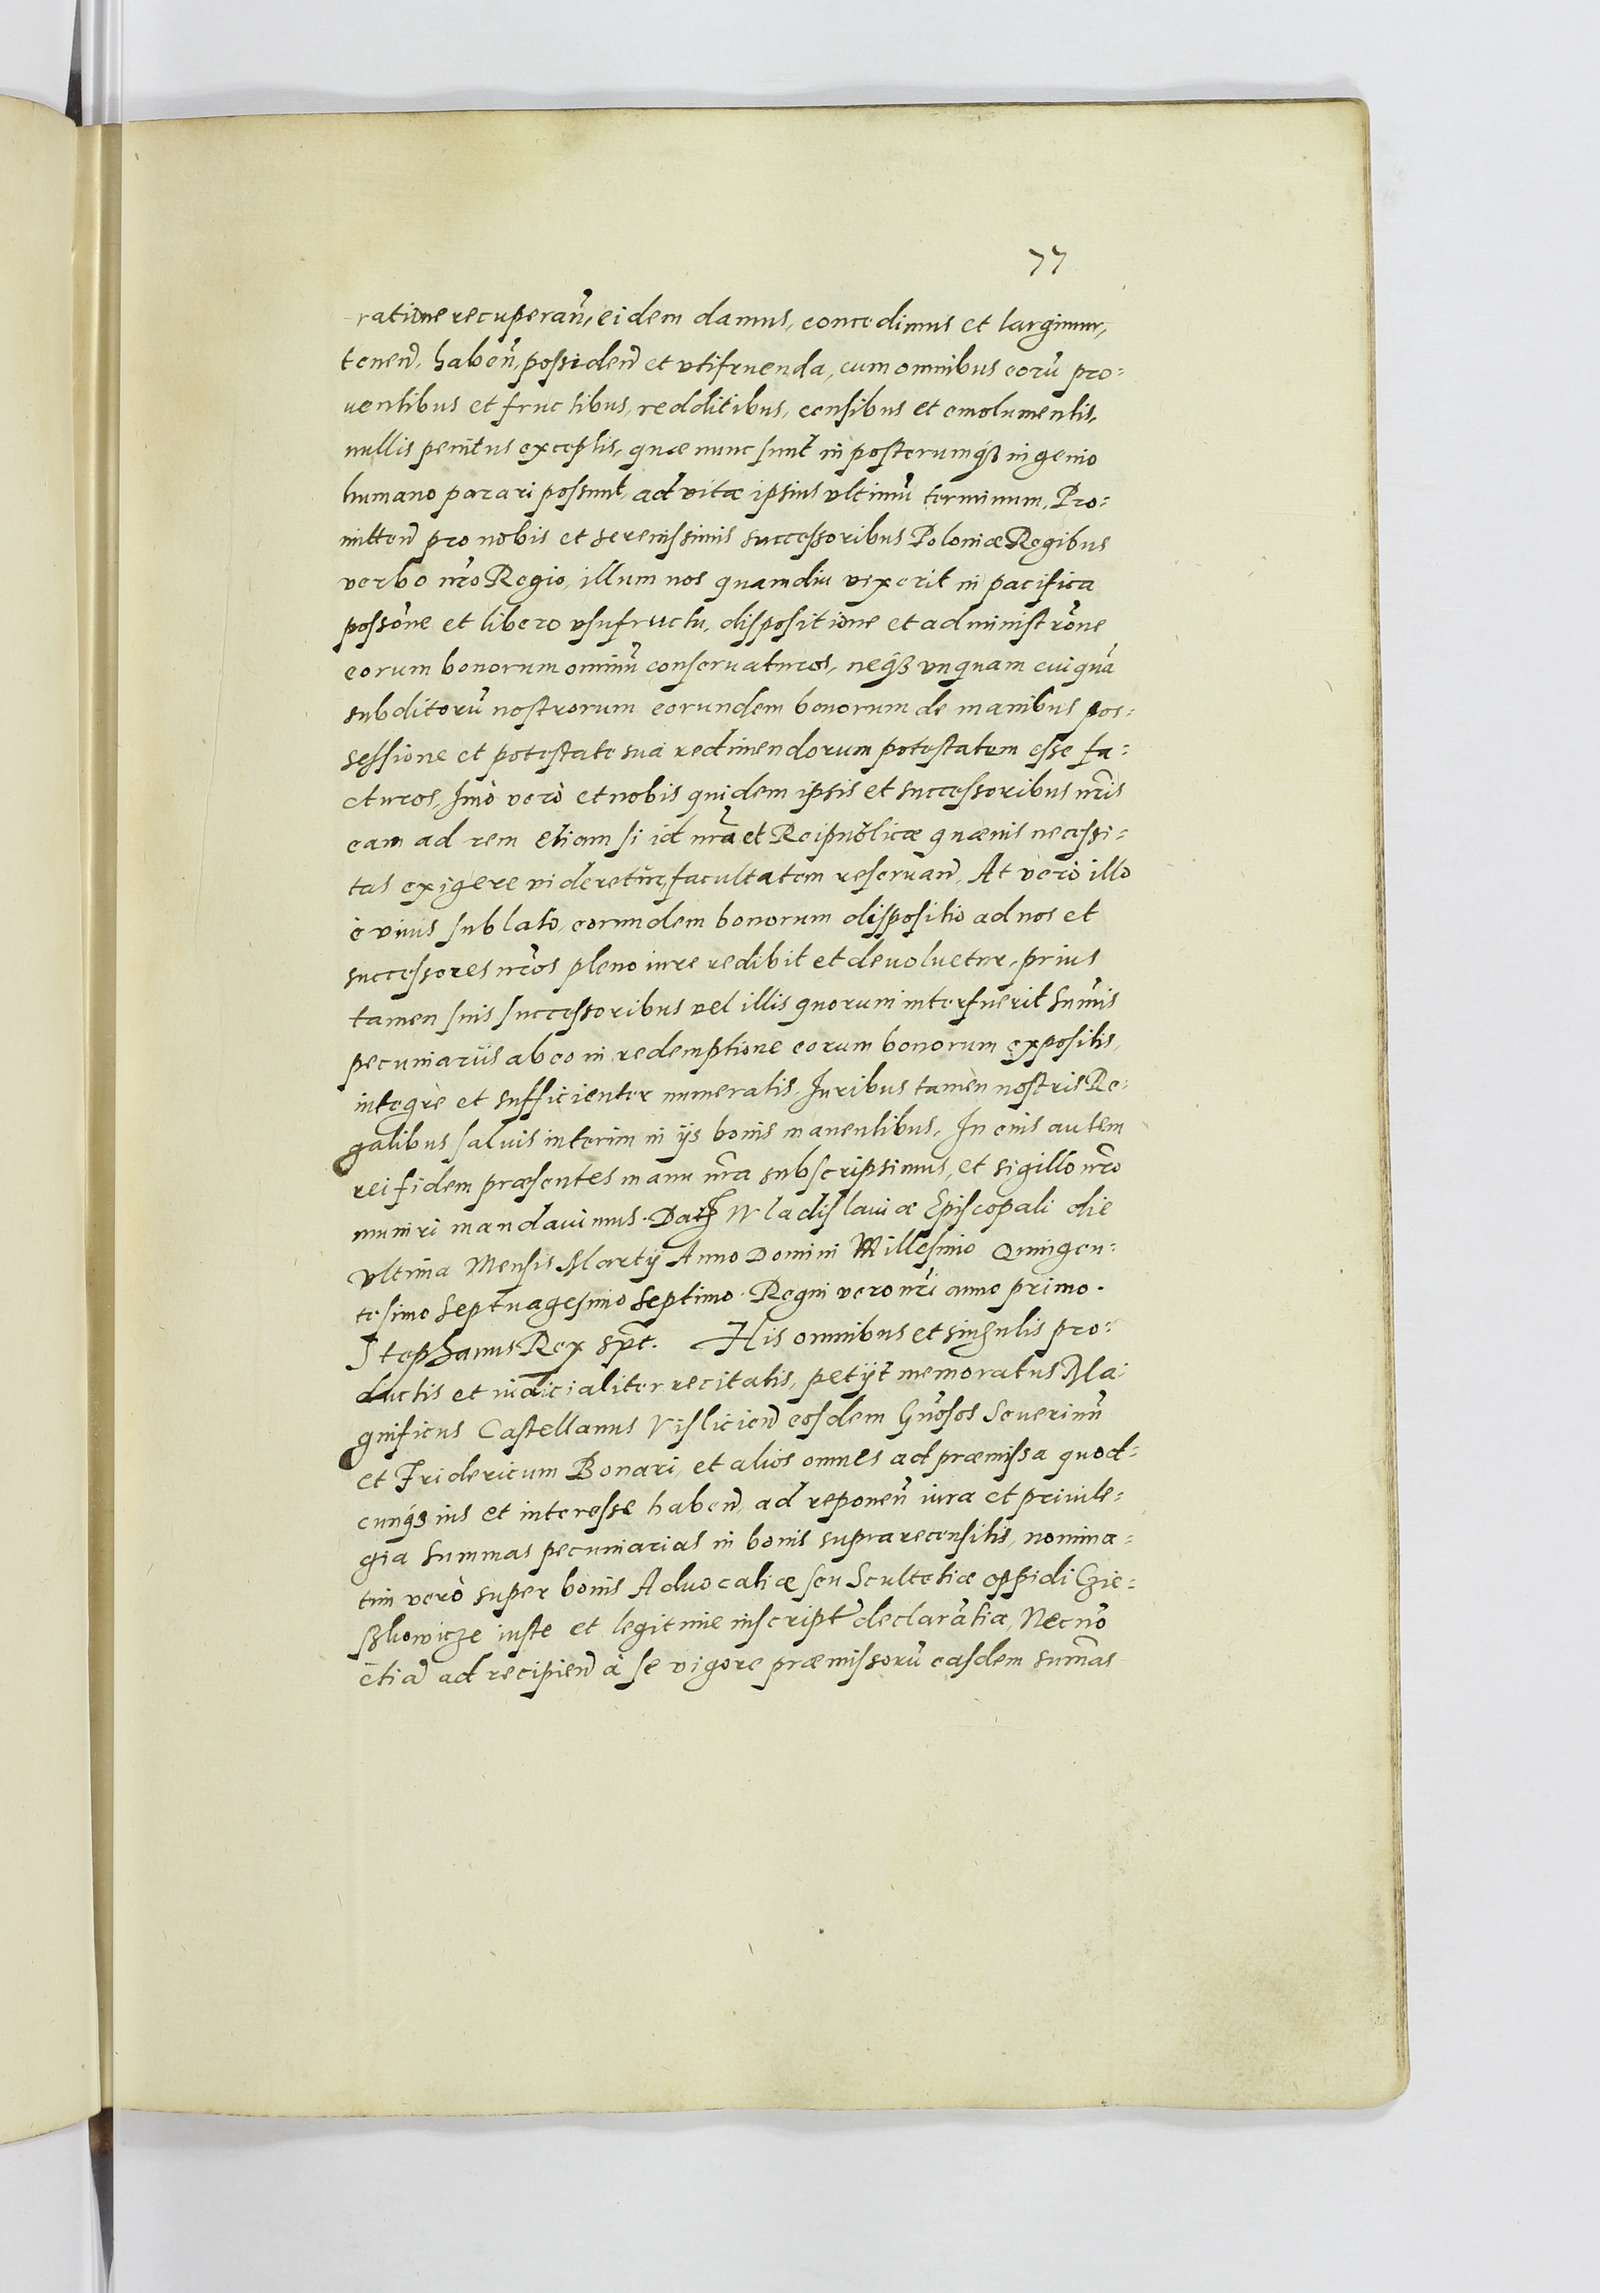 77
ratione recuperan̄, eidem damus, concedimus et largimur,
tenen̄, haben̄, possiden̄ et vtifruenda, cum omnibus eorū pro=
uentibus et fructibus, redditibus, censibus et emolumentis,
nullis penitus exceptis, quæ nunc sunt in posterumq́ꝫ ingenio
humano parari possunt, ad vitæ ipsius vltimū terminum, Pro=
mitten̄ pro nobis et serenissimis successoribus Poloniæ Regibus
verbo nr̄o Regio, illum nos quamdiu vixerit in pacifica
possōne et libero vsufructu, dispositione et administrōne
eorum bonorum omniū conseruaturos, neq́ꝫ vnquam cuiquā
subditorū nostrorum eorundem bonorum de manibus pos=
sessione et potestate sua redimendorum potestatem esse fa=
cturos, Imò verò et nobis quidem ipsis et successoribus nr̄is
eam ad rem etiam si id nr̄a et Reipublicæ quæuis necessi=
tas exigere videretur, facultatem reseruan̄, At verò illo
è viuis sublato, eorundem bonorum dispositio ad nos et
successores nr̄os pleno iure redibit et deuoluetur, prius
tamen suis successoribus vel illis quorum interfuerit sum̄is
pecuniariis ab eo in redemptione eorum bonorum expositis,
integrè et sufficienter numeratis, Iuribus tamen nostris Re=
galibus saluis interim in ijs bonis manentibus, In cuius autem
rei fidem præsentes manu nr̄a subscripsimus, et sigillo nr̄o
muniri mandauimus. Datꝭ Wladislauiæ Episcopali die
vltima Mensis Martij Anno Domini Millesimo Quingen=
tesimo Septuagesimo Septimo. Regni vero nr̄i anno primo.
Stephanus Rex spt̄. His omnibus et singulis pro=
ductis et iudicialiter recitatis, petijt memoratus Ma=
gnificus Castellanus Vislicien̄ eosdem Gn̄osos Seuerinū
et Fridericum Bonari, et alios omnes ad præmissa quod=
cunq́ꝫ ius et interesse haben̄, ad reponen̄ iura et priuile=
gia summas pecuniarias in bonis suprarecensitis, nomina=
tim verò super bonis Aduocatiæ seu Scultetiæ oppidi Czie=
szkowicze iuste et legitime inscript̄ declarātia, Necnō
etiā ad recipien̄ à se vigore præmissorū easdem sum̄as